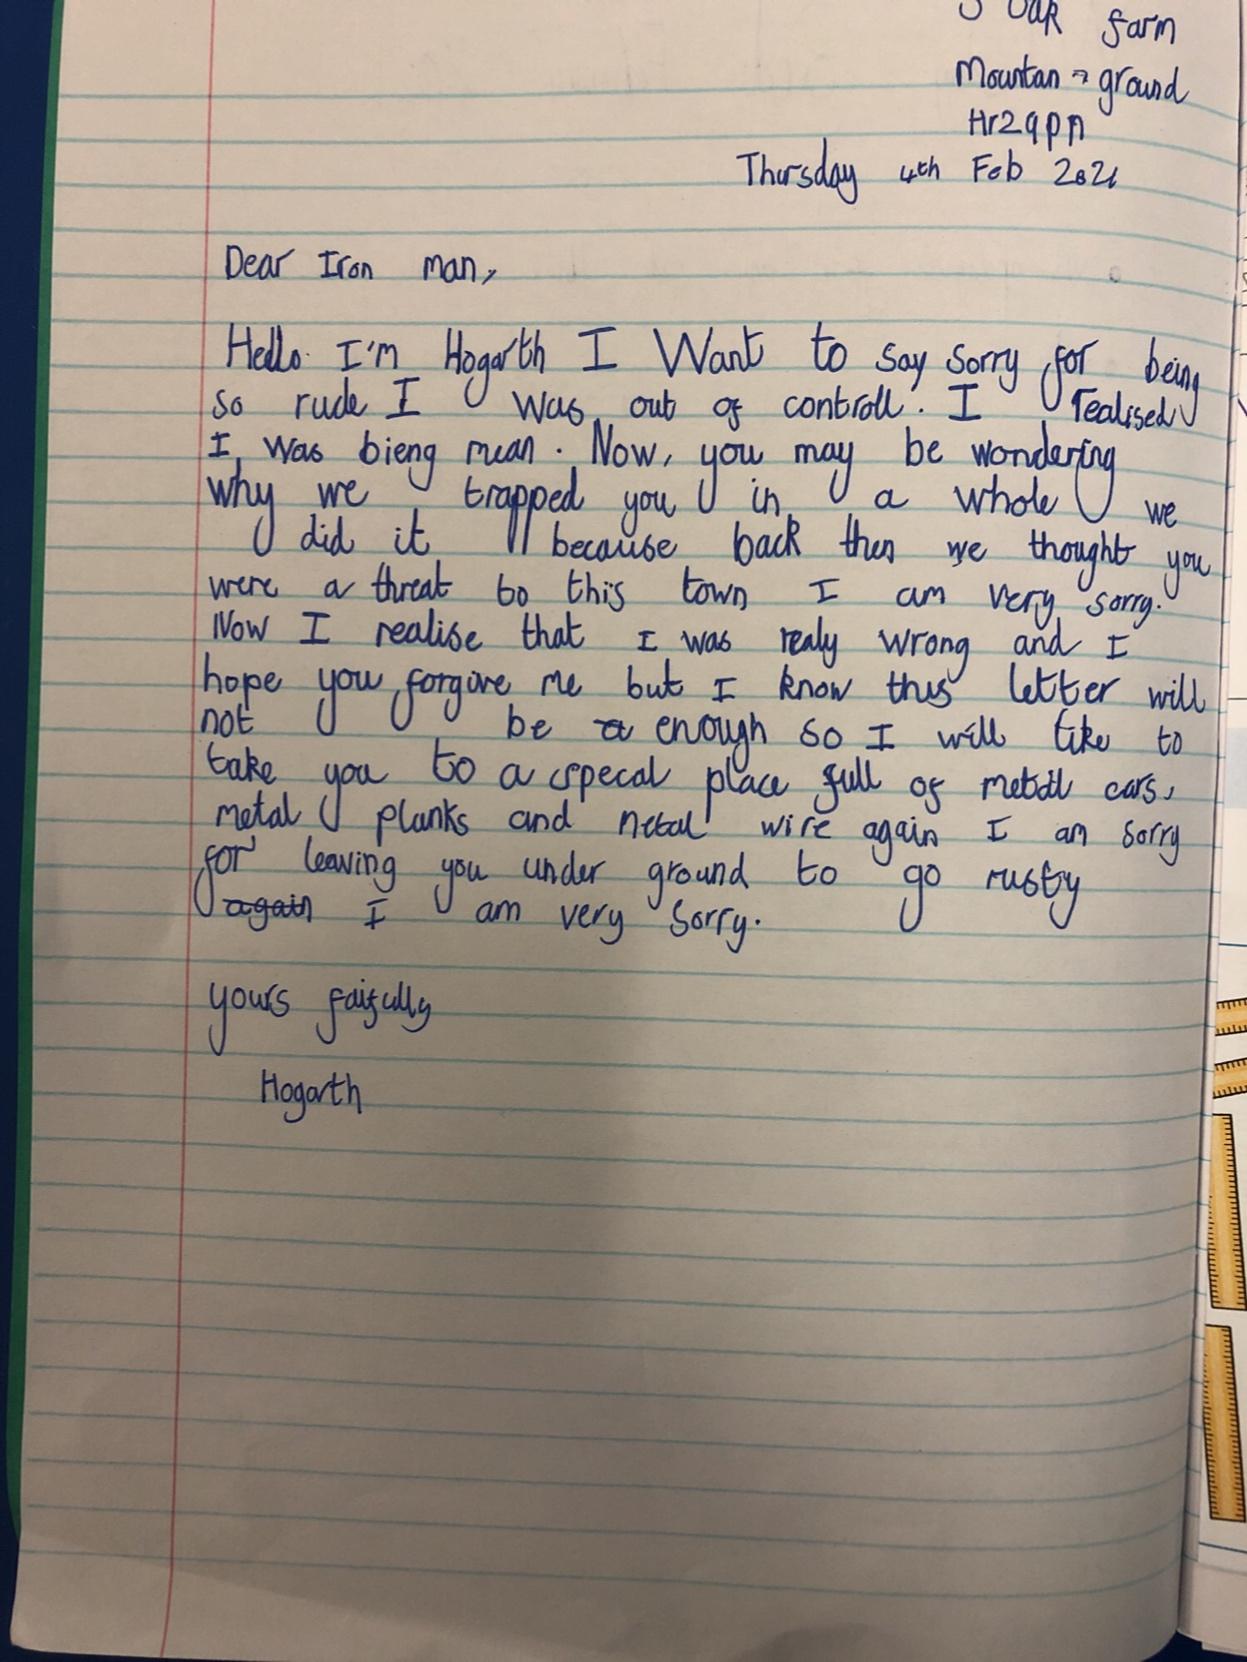 5 Oak farm
Mountan - ground
Hr29pn
Thursday 4th Feb 2021
Dear Iron man,
Hello. I'm Hogarth I Want to say sorry for being
so rude I was out of controll. I realised
I was bieng mean. Now, you may be wondering
why we trapped you in a whole we
did it because back then we thought you
were a threat to this town I am very sorry.
Now I realise that I was realy wrong and I
hope you forgive me but I know this letter will
not be a enough so I will like to
take you to a specal place full of metal cars,
metal planks and metal wire again I am sorry
for leaving you under ground to go rusty
again I am very sorry.
yours faifully
Hogarth